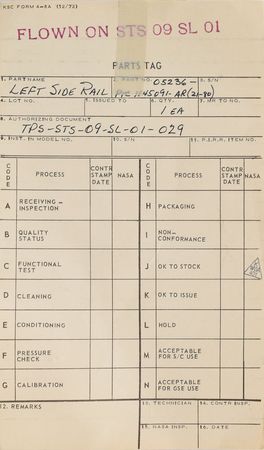 KSC FORM 4-8A (12/72)
FLOWN ON STS 09 SL 01
PARTS TAG
1. PART NAME 2. PART NO. 05236- 3. S/N
LEFT SIDE RAIL 45091-AR(21-80)
4. LOT NO. 5. ISSUED TO 6. QTY. 7. MR TO NO.
1 EA
8. AUTHORIZING DOCUMENT
TPS-STS-09-SL-01-029
9. INST. IN MODEL NO. 10. S/N 11. P.S.R.R. ITEM NO.
CODE PROCESS CONTR STAMP DATE NASA CODE PROCESS CONTR STAMP DATE NASA
A RECEIVING - INSPECTION H PACKAGING
B QUALITY STATUS I NON- CONFORMANCE
C FUNCTIONAL TEST J OK TO STOCK
D CLEANING K OK TO ISSUE
E CONDITIONING L HOLD
F PRESSURE CHECK M ACCEPTABLE FOR S/C USE
G CALIBRATION N ACCEPTABLE FOR GSE USE
12. REMARKS 13. TECHNICIAN 14. CONTR INSP.
15. NASA INSP. 16. DATE